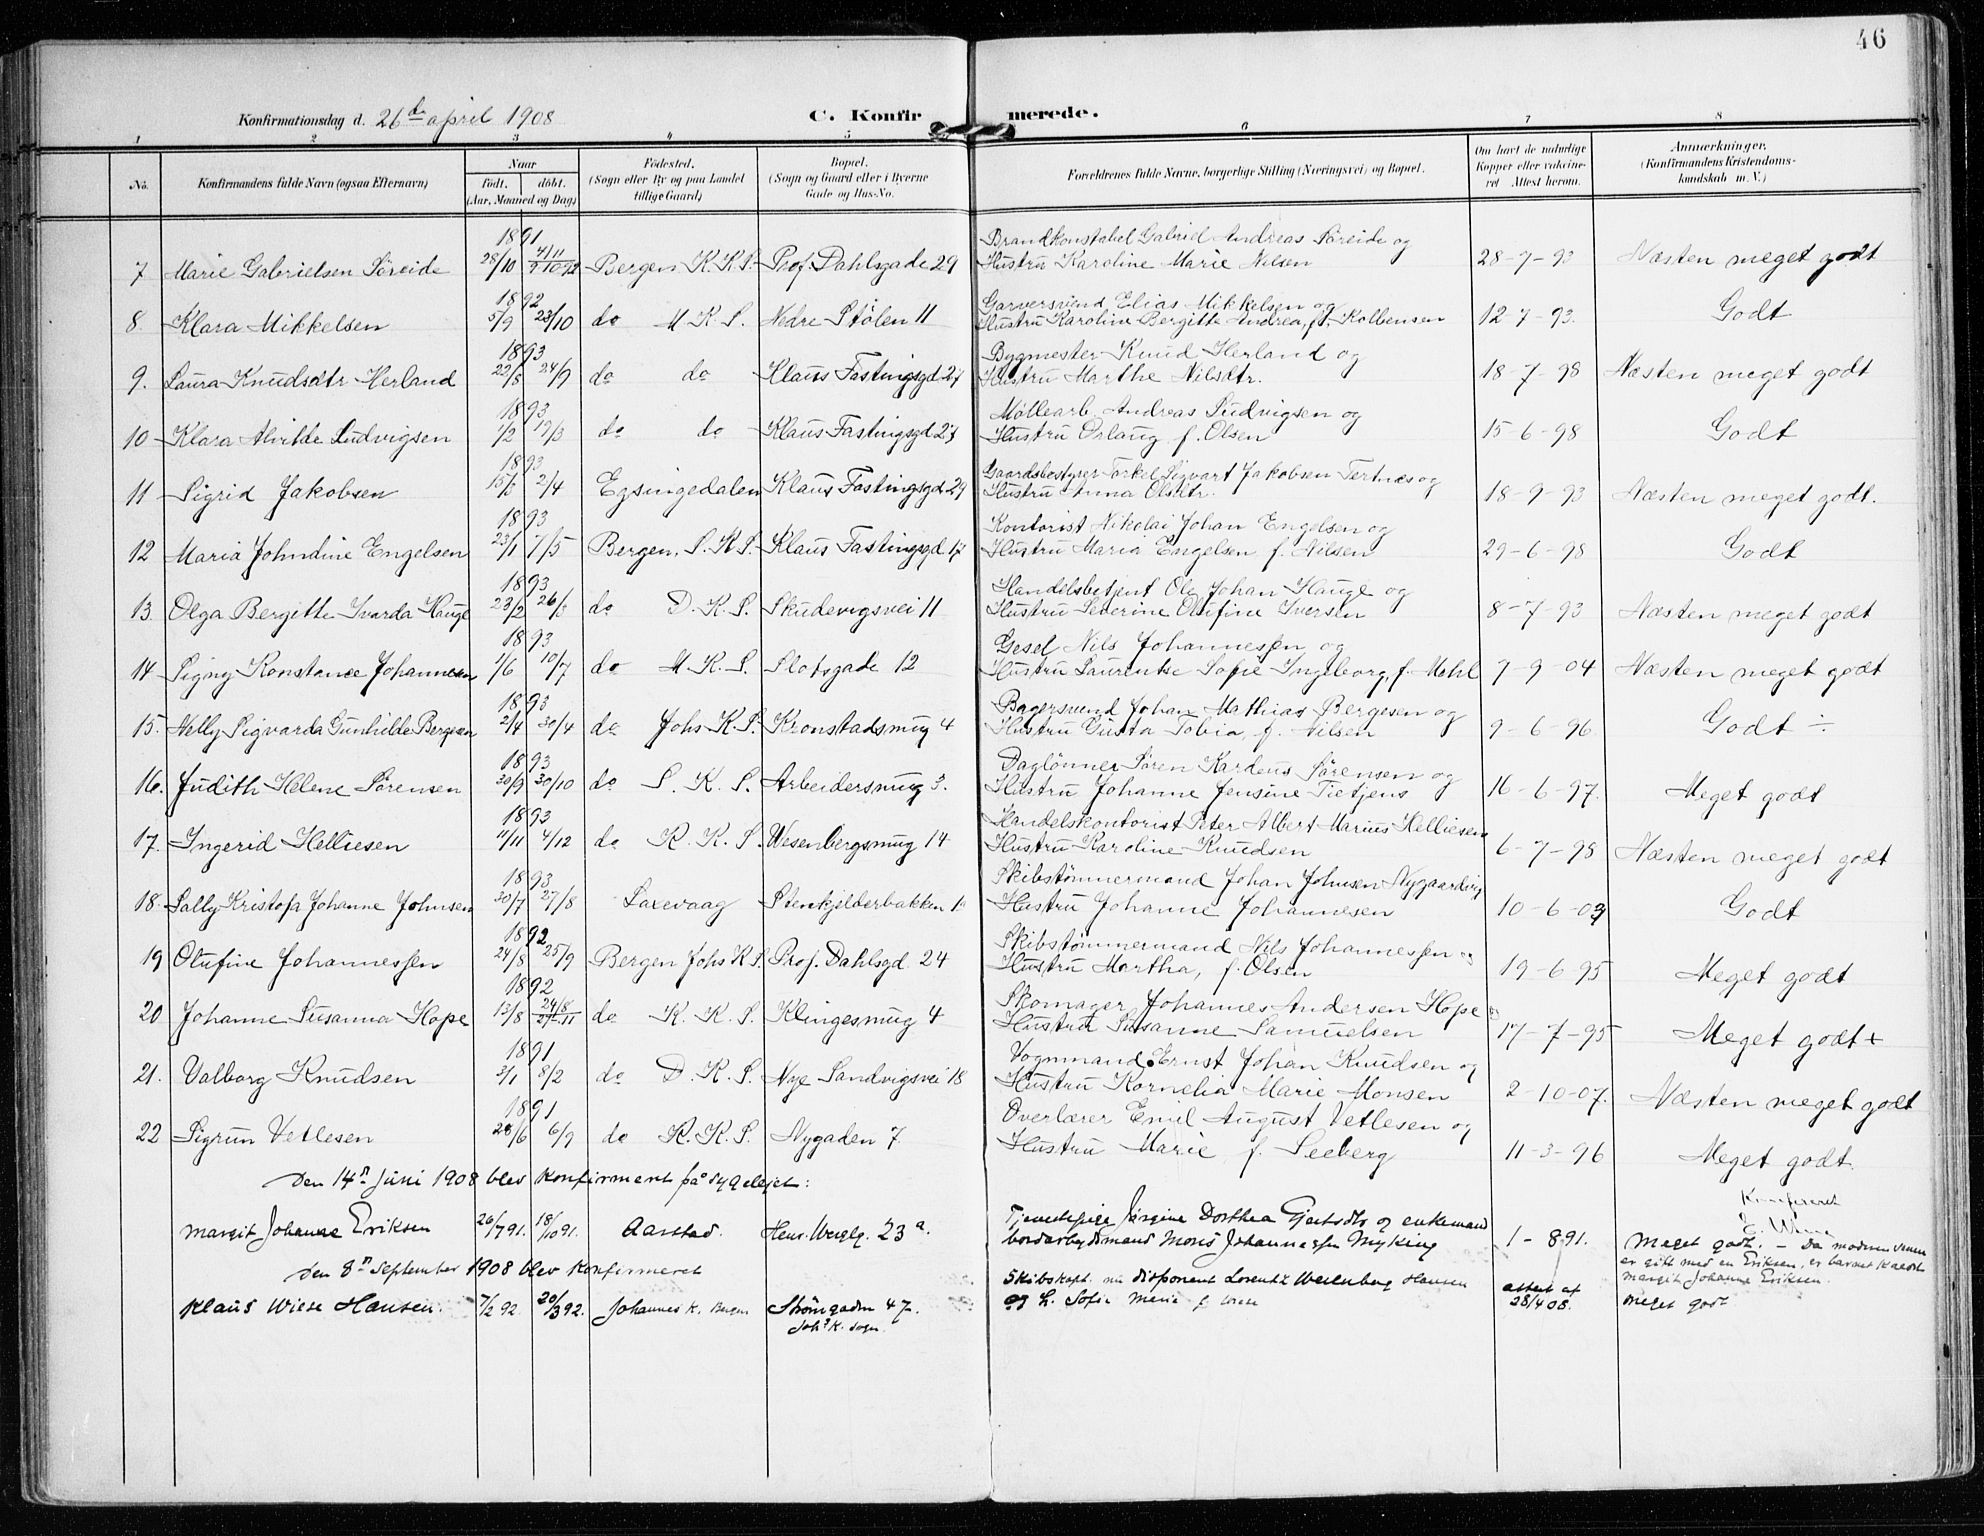 46
Konfirmationsdag d. 26de april 1908 C. Konfirmerede.
1 2 3 4 5 6 7 8
No. Konfirmandens fulde Navn (ogsaa Efternavn) Naar født. døbt. (Aar, Maaned og Dag) Fødested. (Sogn eller By og paa Landet tillige Gaard) Bopæl. (Sogn og Gaard eller i Byerne Gade og Hus-No. Forældrenes fulde Navne, borgerlige Stilling (Næringsvei) og Bopæl. Om havt de naturlige Kopper eller vakcineret Attest herom. Anmærkninger. (Konfirmandens Kristendomskundskab m. V.)
1891 Brandkonstabel Gabriel Andreas Søreide og
7 Marie Gabrielsen Søreide 28/10 4/11 Bergen K.K.S. Prof. Dahlsgade 29 Hustru Karoline Marie Nilsen 28-7-93 Næsten meget godt
1892 Garversvend Elias Mikkelsen og
8. Klara Mikkelsen 5/9 23/10 do M.K.S. Nedre Stølen 11 Hustru Karoline Bergitte Andrea, f. Kolbensen 12-7-93. Godt
1893 Bygmester Knud Herland og
9. Laura Knudsdtr Herland 22/8 24/9 do do Klaus Fastingsgd 27 Hustru Marthe Nilsdtr. 18-7-98 Næsten meget godt
1893 Møllearb. Andreas Ludvigsen og
10 Klara Alvilde Ludvigsen 1/2 19/3 do do Klaus Fastingsgd 27 Hustru Oslaug f. Olsen 15-6-98 Godt
1893 Gaardsbestyrer Torkel Sigvart Jakobsen Tertnæs og
11 Sigrid Jakobsen 15/2 2/4 Egsingedalen Klaus Fastingsgd 29 Hustru Anna Olsdtr. 18-9-93 Næsten meget godt.
1893 Kontorist Nikolai Johan Engelsen og
12 Maria Johndine Engelsen 23/1 7/5 Bergen, S.K.S. Klaus Fastingsgd 12 Hustru Maria Engelsen f. Nilsen 29-6-98 Godt
1893 Handelsbetjent Ole Johan Hauge og
13. Olga Bergitte Ivarda Hauge 23/2 26/3 do D.K.S. Skudevigsvei 11 Hustru Severine Olufine Iversen 8-7-93 Næsten meget godt
1893 Gesel Nils Johannessen og
14 Signy Konstance Johannesen 7/6 10/7 do M.K.S. Slotsgade 12 Hustru Laurentse Sofie Ingeborg, f. Mohl 7-9-04 Næsten meget godt
1893 Bagersvend Johan Mathias Bergesen og
15. Nelly Sigvarda Gunhilde Bergesen 2/4 30/4 do Johs K.S. Kronstadsmug 4 Hustru Gusta Tobia, f. Nilsen 9-6-96 Godt ÷
1893 Daglønner Søren Kardeus Sørensen og
16. Judith Helene Sørensen 30/9 30/10 do S.K.S. Arbeidersmug 3. Hustru Johanne Jensine Tietjens 16-6-97. Meget godt
1893 Handelskontorist Peter Albert Marius Helliesen
17. Ingerid Helliesen 11/11 4/12 do K.K.S. Wesenbergsmug 14 Hustru Karoline Knudsen 6-7-98 Næsten meget godt
1893 Skibstømmermand Johan Johnsen Nygaardvig
18. Sally Kristofa Johanne Johnsen 30/7 27/8 Laxevaag Stenkjelderbakken Hustru Johanne Johannesen 10-6-03 Godt
1892 Skibstømmermand Nils Johannessen og
19 Olufine Johannessen 24/8 25/9 Bergen Johs K.S. Prof. Dahlsgd 24 Hustru Martha, f. Olsen 19-6-95 Meget godt
1892 Skomager Johannes Andersen Hope
20 Johanne Susanna Hope 13/8 24/8 27-11 do K.K.S. Klingesmug 4 Hustru Susanne Samuelsen 17-7-95 Meget godt +
1891 Vognmand Ernst Johan Knudsen og
21. Valborg Knudsen 3/1 8/2 do D.K.S. Nye Sandvigsvei 18 Hustru Kornelia Marie Monsen 2-10-07. Næsten meget godt
1891 Overlærer Emil August Vetlesen og
22 Sigrun Vetlesen 28/6 6/9 do K.K.S. Nygaden 7 Hustru Marie f. Seeberg 11-3-96 Meget godt.
Den 14n juni 1908 blev konfirmeret på sygelejet:
Konfereret
Margit Johanne Eriksen 26/7 91. 18/10 91. Aarstad. Henr. Wergelg. 23a. Tjenestepige Jørgine Dorthea Gjertsdtr og enkemand
bordarbejdsmand Mons Johannessen Myking 1-891. Meget godt. – Da moderen senere
er gift med en Eriksen, er barnet kaldt
Margit Johanne Eriksen.
Den 8n september 1908 blev konfirmeret
Skibskapt. nu disponent Lorentz Wesenberg Hansen
Klaus Wiese Hansen. 7/2 92. 20/3 92. Johannes K. Bergen Strømgaden 47. og H. Sofie Marie f. Wiese attest af 28/4 08. meget godt
Johs K. sogn.